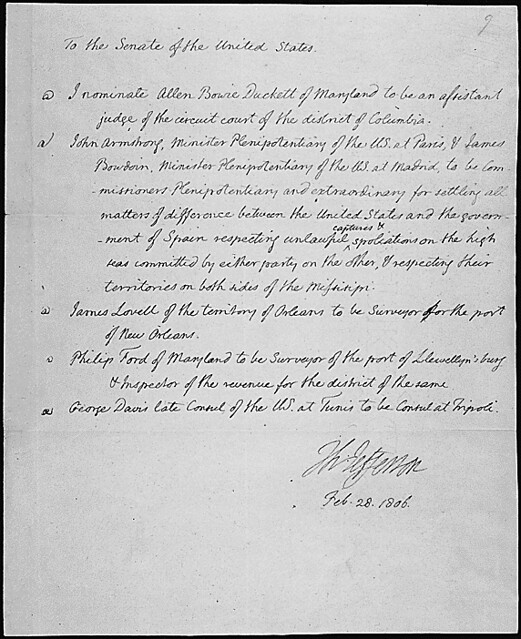 9
To the Senate of the United States.
I nominate Allen Bowie Duckett of Maryland to be an assistant
judge of the circuit court of the district of Columbia.
John Armstrong, Minister Plenipotentiary of the US. at Paris, & James
Bowdoin, Minister Plenipotentiary of the US. at Madrid, to be Com-
-missioners Plenipotentiary and extraordinary for settling all
matters of difference between the United States and the govern-
-ment of Spain respecting unlawful captures & spoliations on the high
seas committed by either party on the other, & respecting their
territories on both sides of the Missisipi.
James Lovell of the territory of Orleans to be Surveyor for the port
of New Orleans.
Philip Ford of Maryland to be Surveyor of the port of Llewellyn's burg
& Inspector of the revenue for the district of the same
George Davis late Consul of the US. at Tunis to be Consul at Tripoli.
Th: Jefferson
Feb. 28. 1806.